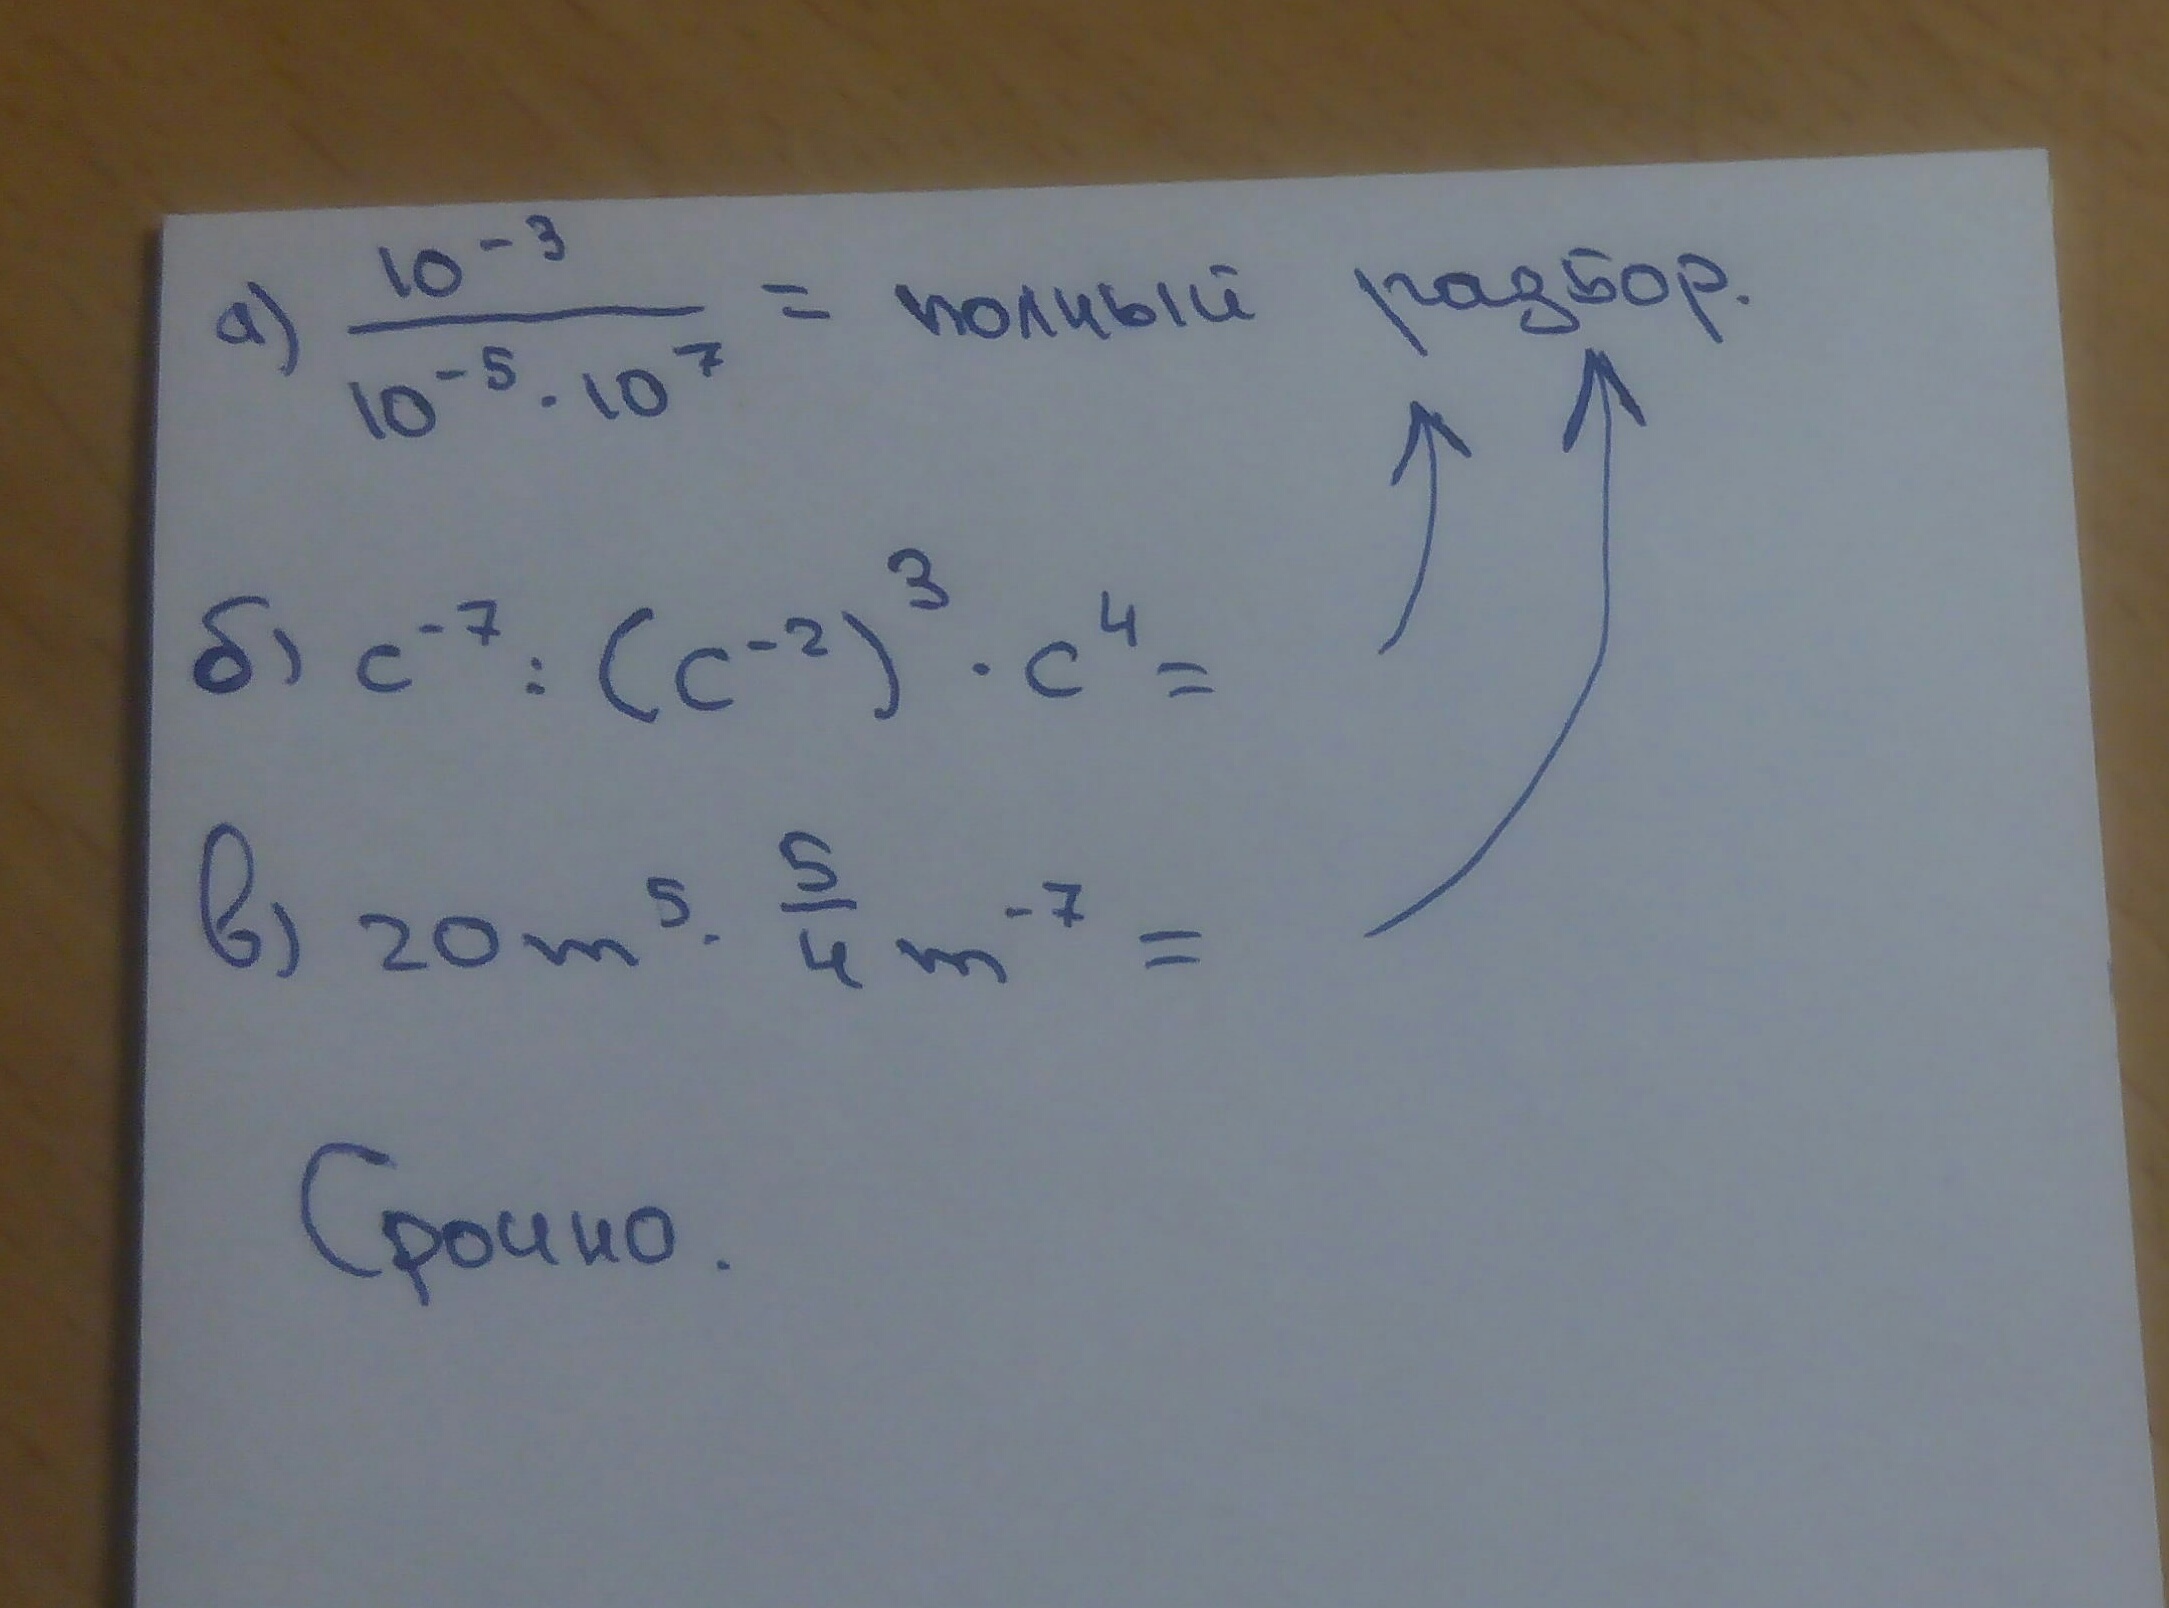 а) 10⁻³ / 10⁻⁵ · 10⁷ = полный разбор.
б) c⁻⁷ : (c⁻²)³ · c⁴ =
в) 20m⁵ · 5/4 m⁻⁷ =
Срочно.